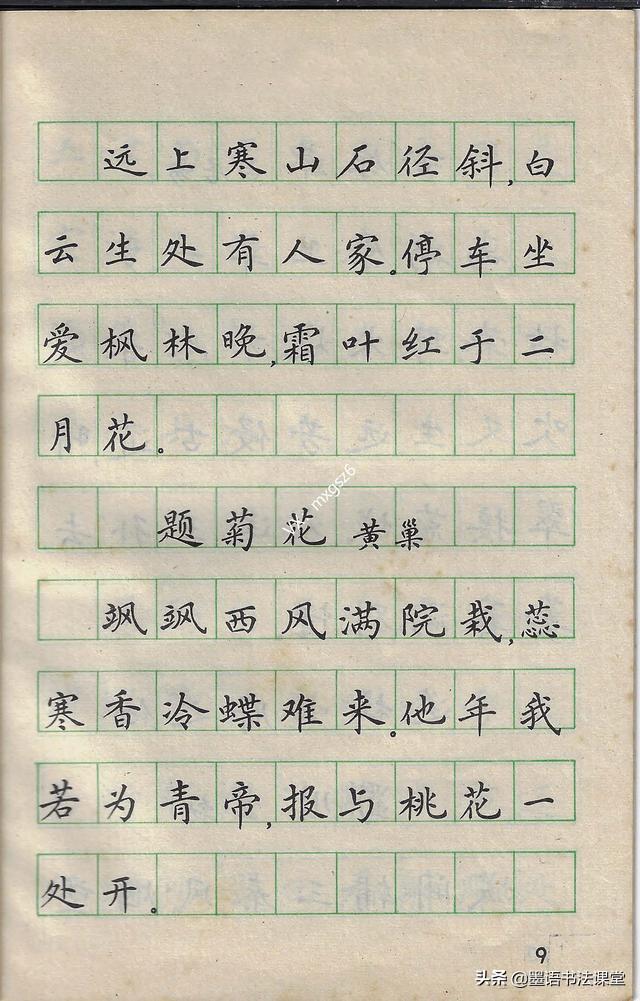 远上寒山石径斜,白
云生处有人家。停车坐
爱枫林晚,霜叶红于二
月花。
题菊花 黄巢
飒飒西风满院栽,蕊
寒香冷蝶难来。他年我
若为青帝,报与桃花一
处开。
9
头条 @墨语书法课堂